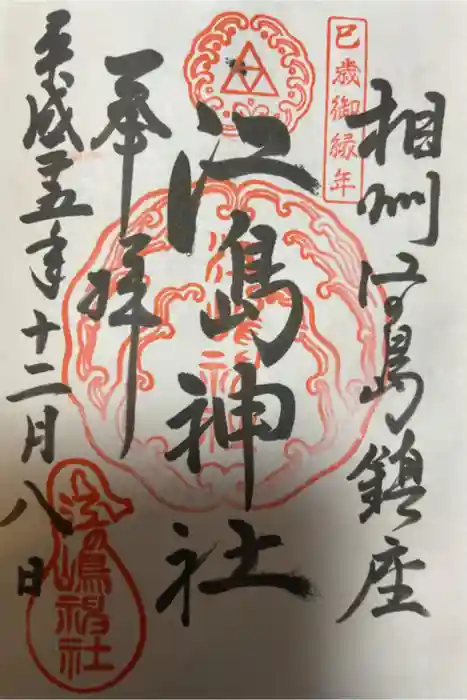 巳歳御縁年
相州江島鎮座
江島神社
奉拝
平成廿五年十二月八日
江の嶋神社